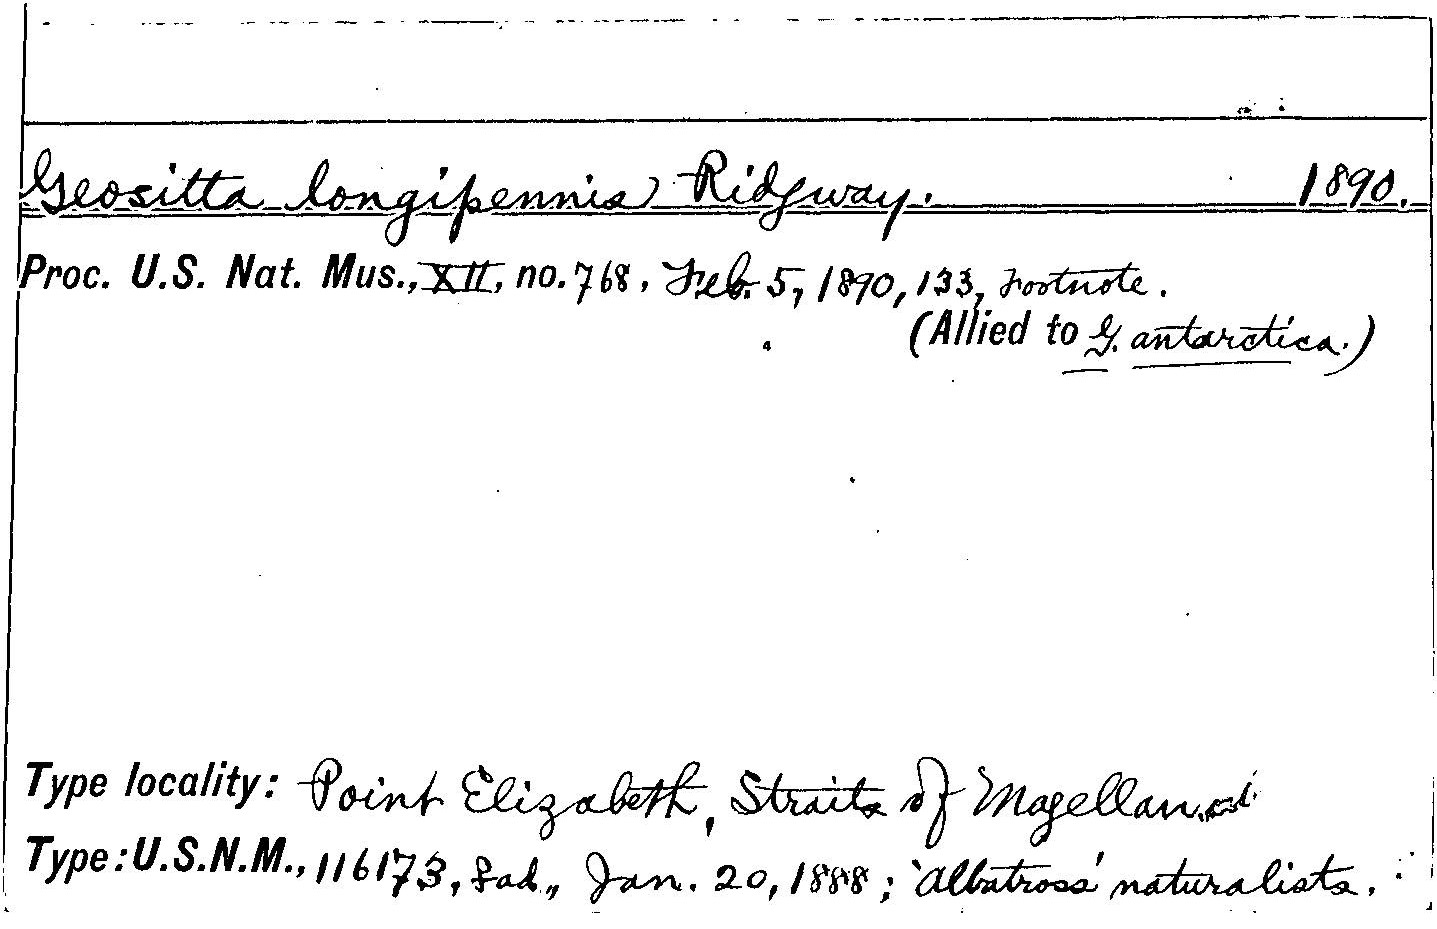 Geositta longipennis Ridgway. 1890.
Proc. U.S. Nat. Mus., XII, no. 768, Feb. 5, 1890, 133, Footnote.
(Allied to G. antarctica.)
Type locality: Point Elizabeth, Straits of Magellan
Type: U.S.N.M., 116173, ad., Jan. 20, 1888; 'Albatross' naturalists.